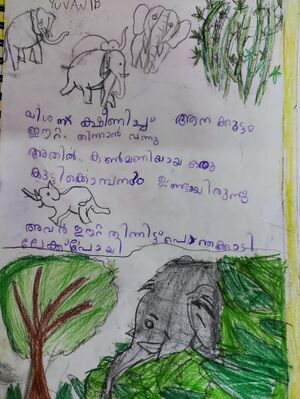 YUVAN 1B
വിശന്ന് ക്ഷീണിച്ച് ആനക്കൂട്ടം
ഈറ്റ തിന്നാൻ വന്നു
അതിൽ കൺമണിയായ ഒരു
കുട്ടിക്കൊമ്പനും ഉണ്ടായിരുന്നു
അവൻ ഈറ്റ തിന്നിട്ട് പൊന്തക്കാട്ടി
ലേക്ക് പോയി